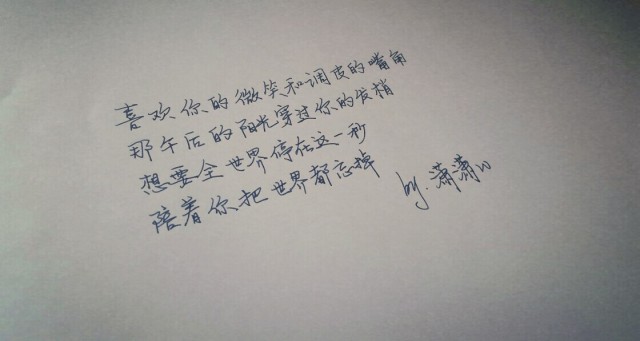 喜欢你的微笑和调皮的嘴角
那午后的阳光穿过你的发梢
想要全世界停在这一秒
陪着你把世界都忘掉
by.潇潇